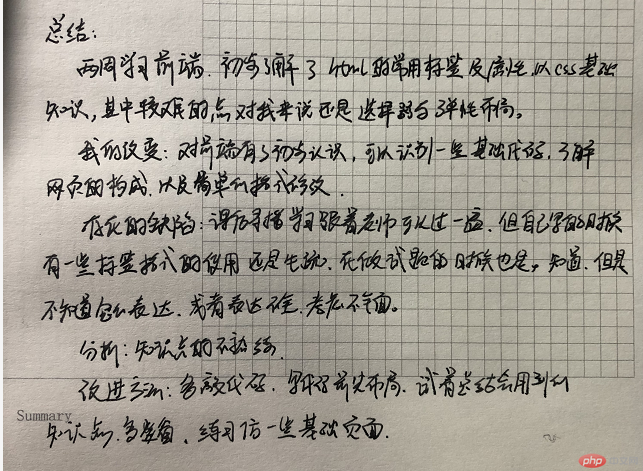 总结:
两周学习前端,初步了解了html的常用标签及属性,以css基础
知识,其中较难的点对我来说还是选择器与弹性布局。
我的改变:对前端有了初步认识,可以识别一些基础代码,了解
网页的构成,以及简单的格式修改.
存在的缺陷:课后寻播学习跟着老师可以过一遍,但自己写的时候
有一些标签格式的使用还是生疏.在做试题的时候也是,知道,但是
不知道怎么表达,或者表达不全,考虑不全面。
分析:知识点的不熟练.
改进方法:多敲代码,写代码前先布局,试着总结会用到的
Summary
知识点,多复习,练习仿一些基础页面.
php